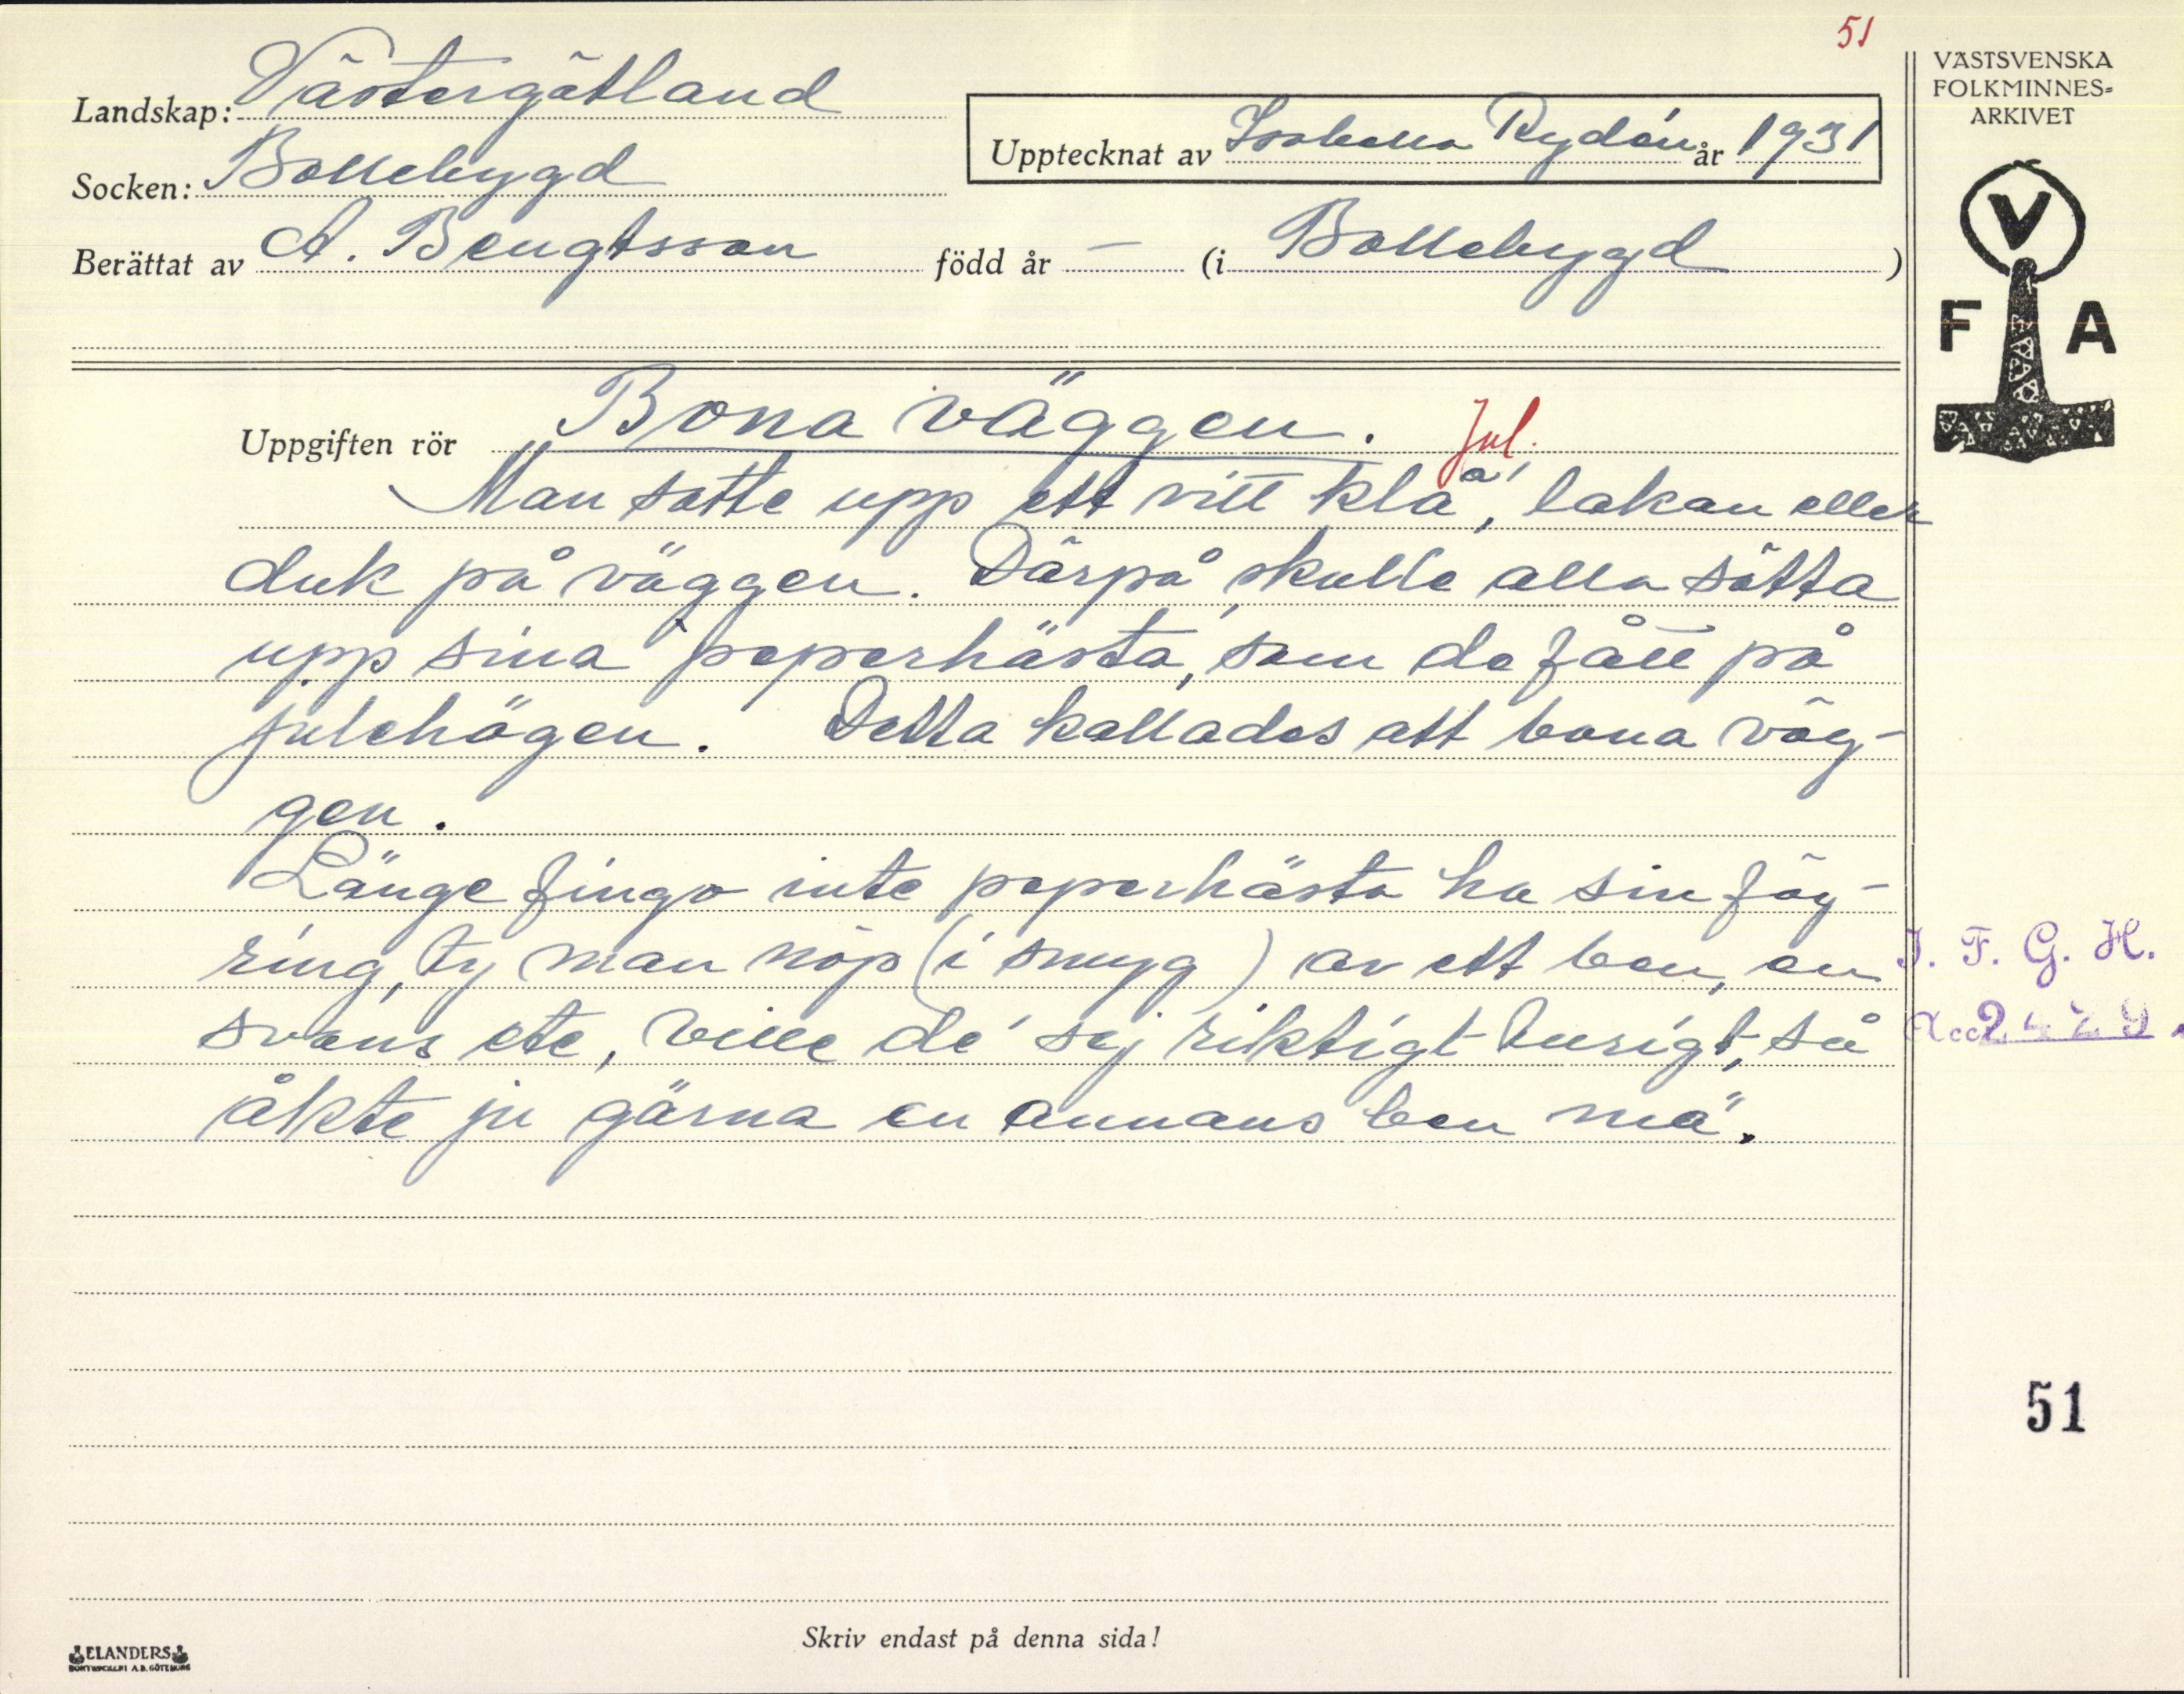 51
VÄSTSVENSKA
FOLKMINNES=
ARKIVET
Landskap: Västergötland
Upptecknat av Isabella Rydén år 1931
Socken: Bollebygd
Berättat av A. Bengtsson född år — (i Bollebygd)
V
F A
Uppgiften rör Bona väggen. Jul.
Man satte upp ett vitt klä, lakan eller
duk på väggen. Därpå skulle alla sätta
upp sina peperhästa, som de fått på
julehögen. Detta kallades att bona väg-
gen.
Länge fingo inte peperhästa ha sin fäg-
ring, ty man nöp (i smyg) av ett ben, en
svans etc, ville dé sej riktigt lusigt, så
åkte ju gärna en annans ben mä.
I. F. G. H.
Acc 2429
51
Skriv endast på denna sida!
ELANDERS
BOKTRYCKERI A.B. GÖTEBORG